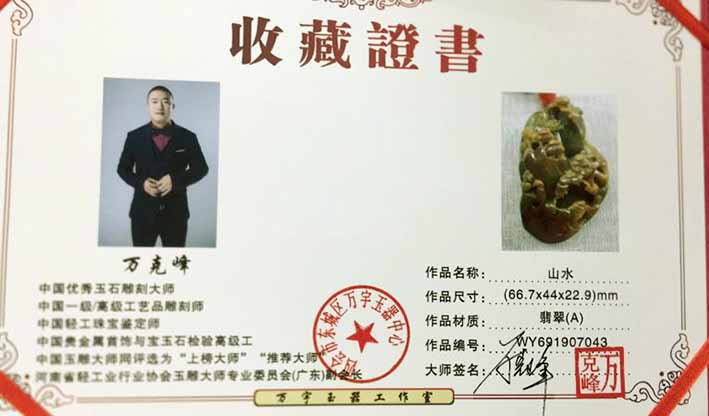 收藏證書
万克峰
中国优秀玉石雕刻大师
中国一级/高级工艺品雕刻师
中国轻工珠宝鉴定师
中国贵金属首饰与宝玉石检验高级工
中国玉雕大师网评选为“上榜大师”“推荐大师”
河南省轻工业行业协会玉雕大师专业委员会(广东)副会长
作品名称：山水
作品尺寸：(66.7x44x22.9)mm
作品材质：翡翠(A)
作品编号：WY691907043
大师签名：
万克峰
市东城区万字玉器中心
万宇玉器工作室